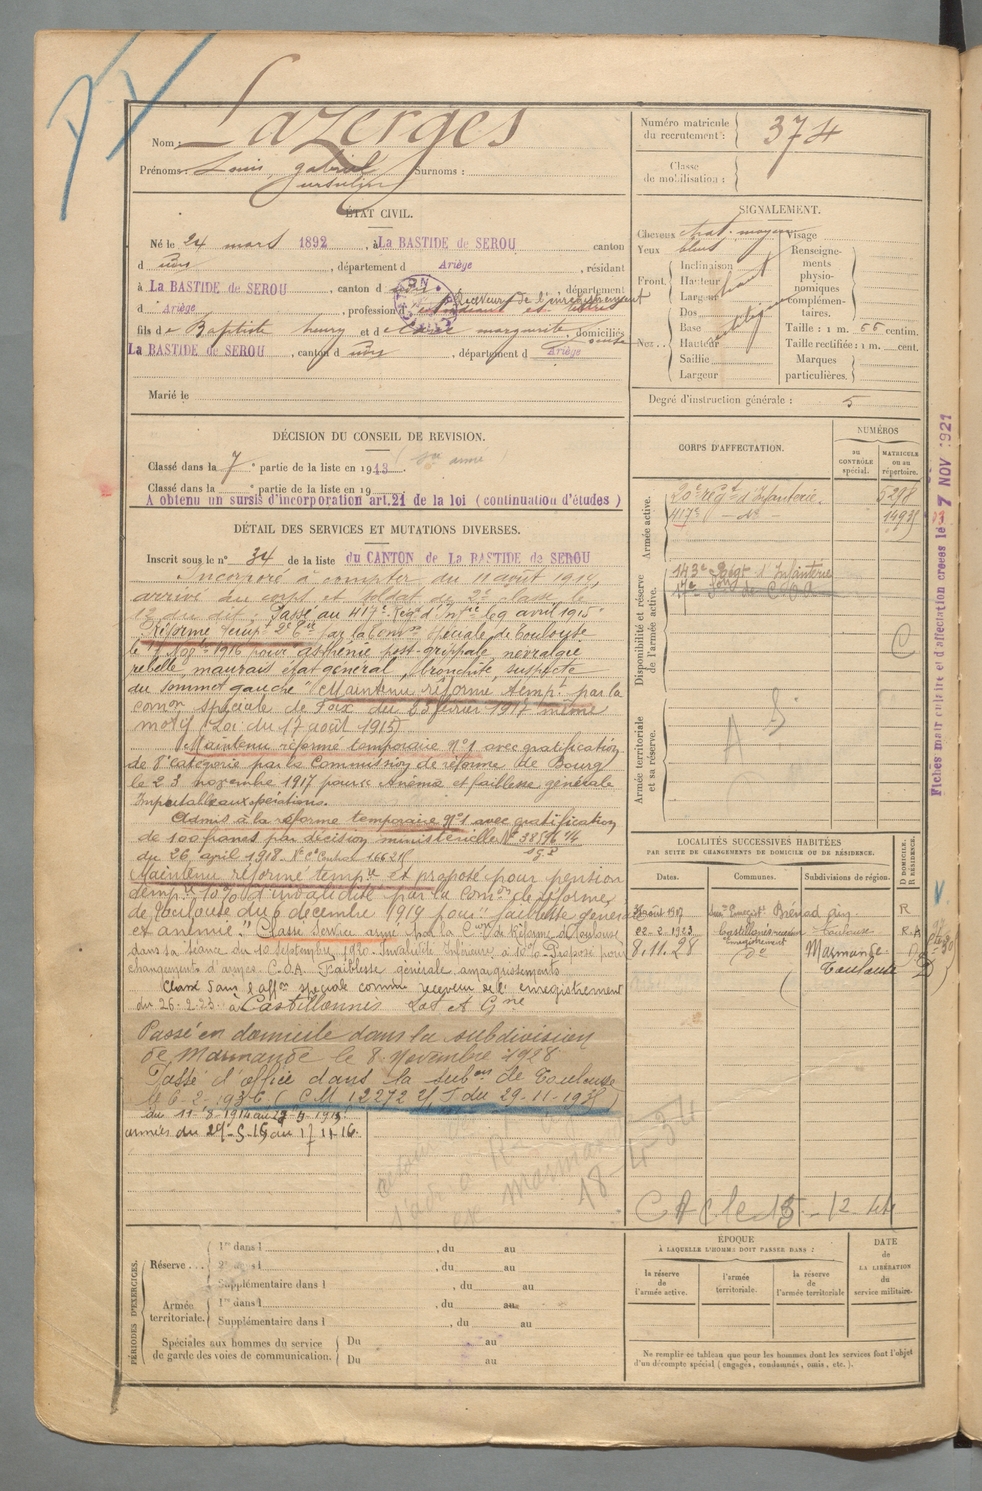 Nom : Lazerges
Prénoms : Louis, gabriel Surnoms :
ursulin
Numéro matricule du recrutement : 374
Classe de mobilisation :
ÉTAT CIVIL.
Né le 24 mars 1892, à La BASTIDE de SEROU canton
d udit, département d Ariège, résidant
à La BASTIDE de SEROU, canton d udit, département
Receveur de l'enregistrement
d Ariège, profession d étudiant ès lettres
fils de Baptiste henry et de marguerite, domiciliés
La BASTIDE de SEROU, canton d udit, département d Ariège
Marié le
SIGNALEMENT.
Cheveux chat. moyen
Yeux bleus
Front. Inclinaison
Hauteur haut
Largeur
Nez. Dos
Base
Hauteur
Saillie
Largeur
Visage
Renseignements physionomiques complémentaires.
Taille : 1 m. 66 centim.
Taille rectifiée : 1 m. cent.
Marques particulières.
Degré d'instruction générale : 5
DÉCISION DU CONSEIL DE REVISION.
Classé dans la 7e partie de la liste en 1913.
Classé dans la partie de la liste en 19
A obtenu un sursis d'incorporation art.21 de la loi (continuation d'études)
DÉTAIL DES SERVICES ET MUTATIONS DIVERSES.
Inscrit sous le n° 34 de la liste du CANTON de La BASTIDE de SEROU
Incorporé à compter du 11 août 1914,
arrivé au corps et soldat de 2e classe le
12 du dit. Passé au 417e Regt d'Inf.ie le 9 avril 1915
Réformé tempre 2e Cie par la Comon spéciale de Toulouse
le 17 Nov. 1916 pour asthénie post-grippale, névralgie
rebelle, mauvais état général, bronchite, suspecte
du sommet gauche. Maintenu réformé tempre par la
comon spéciale de Foix du 23 février 1917 même
motif (Loi du 17 août 1915)
Maintenu réformé temporaire N°1 avec gratification
de 8e catégorie par la Commission de réforme de Bourg
le 23 novembre 1917 pour Anémie et faiblesse générale
Imputable aux opérations.
Admis à la réforme temporaire N°1 avec gratification
de 100 francs par décision ministérielle N°
du 26 april 1918. N°
Maintenu réformé tempre et proposé pour pension
tempre 10% d'invalidité par la Comon de réforme
de Toulouse du 6 décembre 1919 pour "faiblesse générale
et anémie". Classé Service armé par la Con de Réforme de Toulouse
dans sa séance du 10 Septembre 1920. Invalidité Inférieure à 10% Proposé pour
changement d'armes. C.O.A. Faiblesse générale, amaigrissement.
Classé Sans affon spéciale comme receveur de l'enregistrement
du 26-2-23 à Castillonnès Lot et Gne
Passé en domicile dans la subdivision
de Marmande le 8 Novembre 1928
Passé d'office dans la subon de Toulouse
le 6-2-1936 (CM 12272 du 29-11-1935)
du 11-8-1914 au
armées du au 17-11-16.
Marmande
18-4-34
CORPS D'AFFECTATION.
NUMÉROS
au CONTRÔLE spécial.
MATRICULE ou au répertoire.
Armée active.
20e regt d'Infanterie. 5298
417e — do —
Disponibilité et réserve de l'armée active.
143e Régt d'Infanterie
C
Armée territoriale et sa réserve.
Fiches matriculaire et d'affectation créées le 7 NOV 1921
LOCALITÉS SUCCESSIVES HABITÉES
PAR SUITE DE CHANGEMENTS DE DOMICILE OU DE RÉSIDENCE.
Dates. Communes. Subdivisions de région. D DOMICILE. R RÉSIDENCE.
août 1917 Brénod Ain R
22-2-1923 Castillonnès Toulouse R.A
Enregistrement
8.11.28 do Marmande D
Toulouse D
C A C le 15-12-
PÉRIODES D'EXERCICES.
Réserve... 1re dans l , du au
2e dans l , du au
Supplémentaire dans l , du au
Armée territoriale. 1re dans l , du au
Supplémentaire dans l , du au
Spéciales aux hommes du service de garde des voies de communication. Du au
Du au
ÉPOQUE
À LAQUELLE L'HOMME DOIT PASSER DANS :
la réserve de l'armée active.
l'armée territoriale.
la réserve de l'armée territoriale
DATE de LA LIBÉRATION du service militaire.
Ne remplir ce tableau que pour les hommes dont les services font l'objet
d'un décompte spécial (engagés, condamnés, omis, etc.).